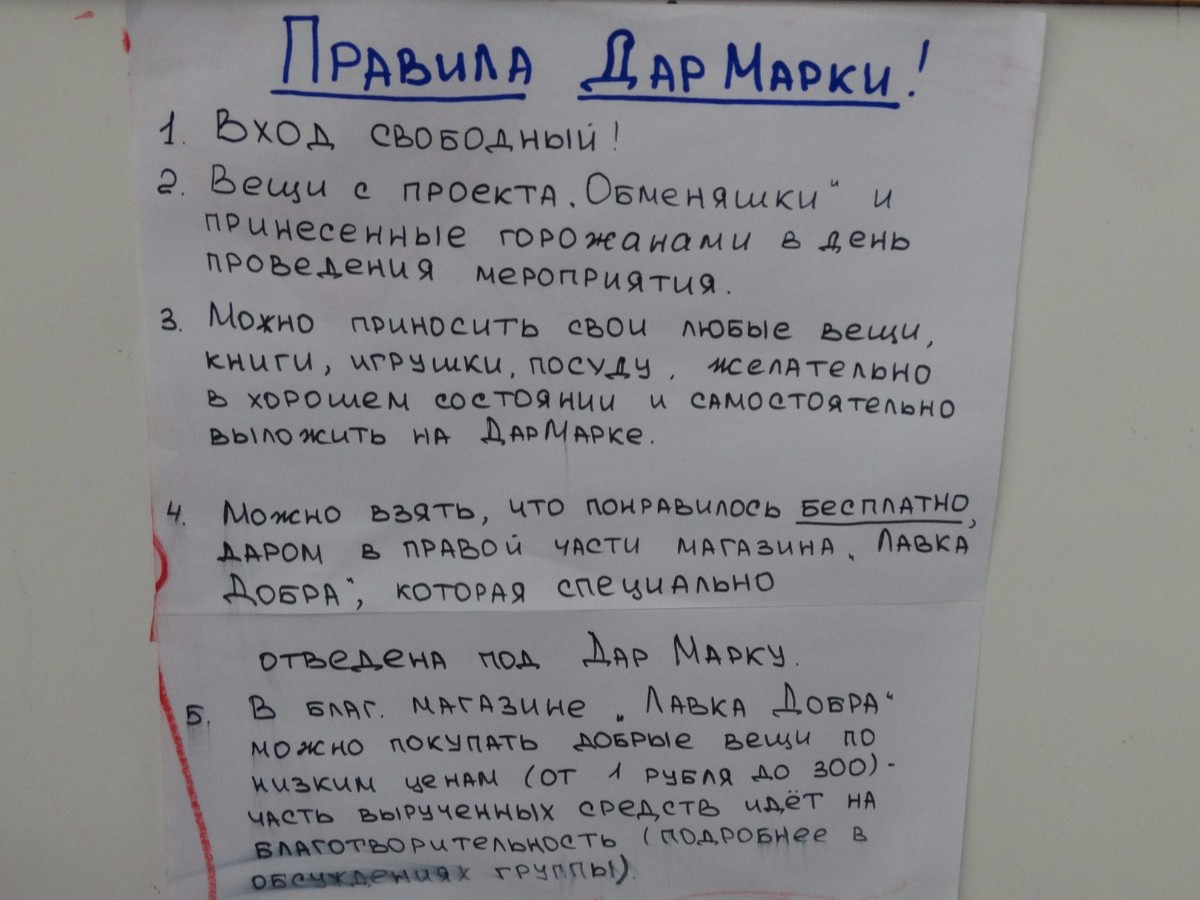 Правила Дар Марки!
1. Вход свободный!
2. Вещи с проекта „Обменяшки“ и
принесенные горожанами в день
проведения мероприятия.
3. Можно приносить свои любые вещи,
книги, игрушки, посуду, желательно
в хорошем состоянии и самостоятельно
выложить на ДарМарке.
4. Можно взять, что понравилось бесплатно,
даром в правой части магазина „Лавка
Добра“, которая специально
отведена под Дар Марку.
5. В благ. магазине „Лавка Добра“
можно покупать добрые вещи по
низким ценам (от 1 рубля до 300)-
часть вырученных средств идёт на
благотворительность (подробнее в
обсуждениях группы).